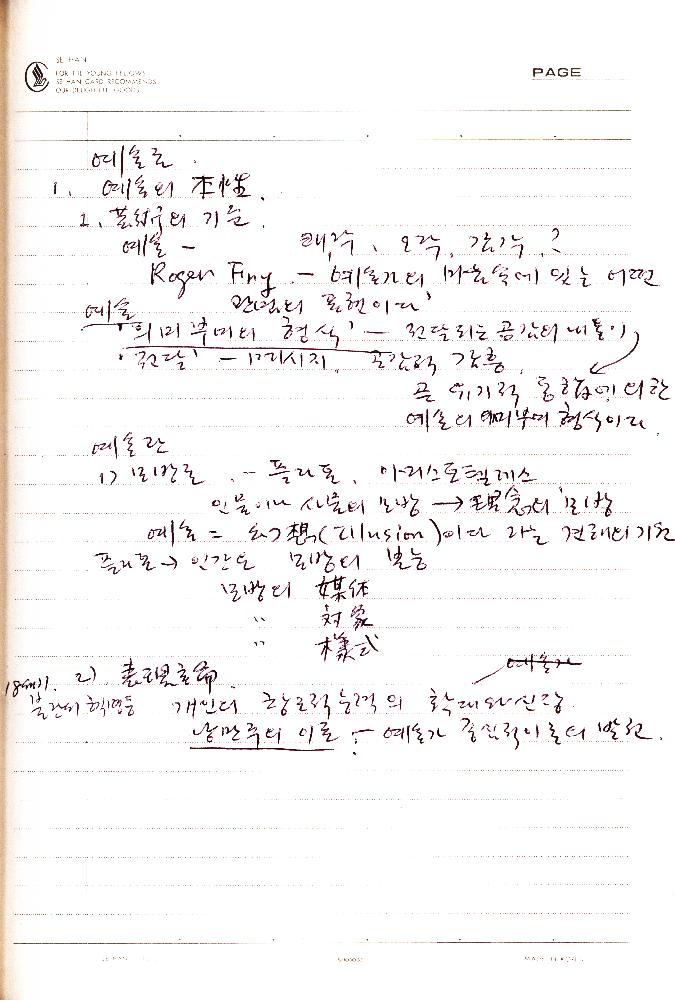 SE HAN
FOR THE YOUNG FELLOWS
SE HAN CARD RECOMMENDS
OUR DELIGHTFUL GOODS
PAGE
예술론.
1. 예술의 本性.
1. 의 기능.
예술 - 미각, 오각, 감각?
Roger Firy - 예술가의 마음속에 있는 어떤
관념의 표현이다'
예술
'의미부여의 형식' - 전달되는 공감의 내용이
'전달' - 메시지. 공감적 감흥.
곧 유기적 통합에 의한
예술의 의미부여 형식이다.
예술관
1) 모방론. - 플라톤, 아리스토텔레스
인물이나 사물의 모방 → 理念의 모방
예술 = 幻想(illusion)이다 라는 견해의 기원
플라톤 → 인간은 모방의 본능
모방의 媒体
" 対象
" 様式
예술가
18세기. 2) 表現主論.
불란서 혁명등 개인의 창조적능력의 확대와 신장
낭만주의 이론 : - 예술가 중심적이론의 발전.
SE HAN
MADE IN KOREA